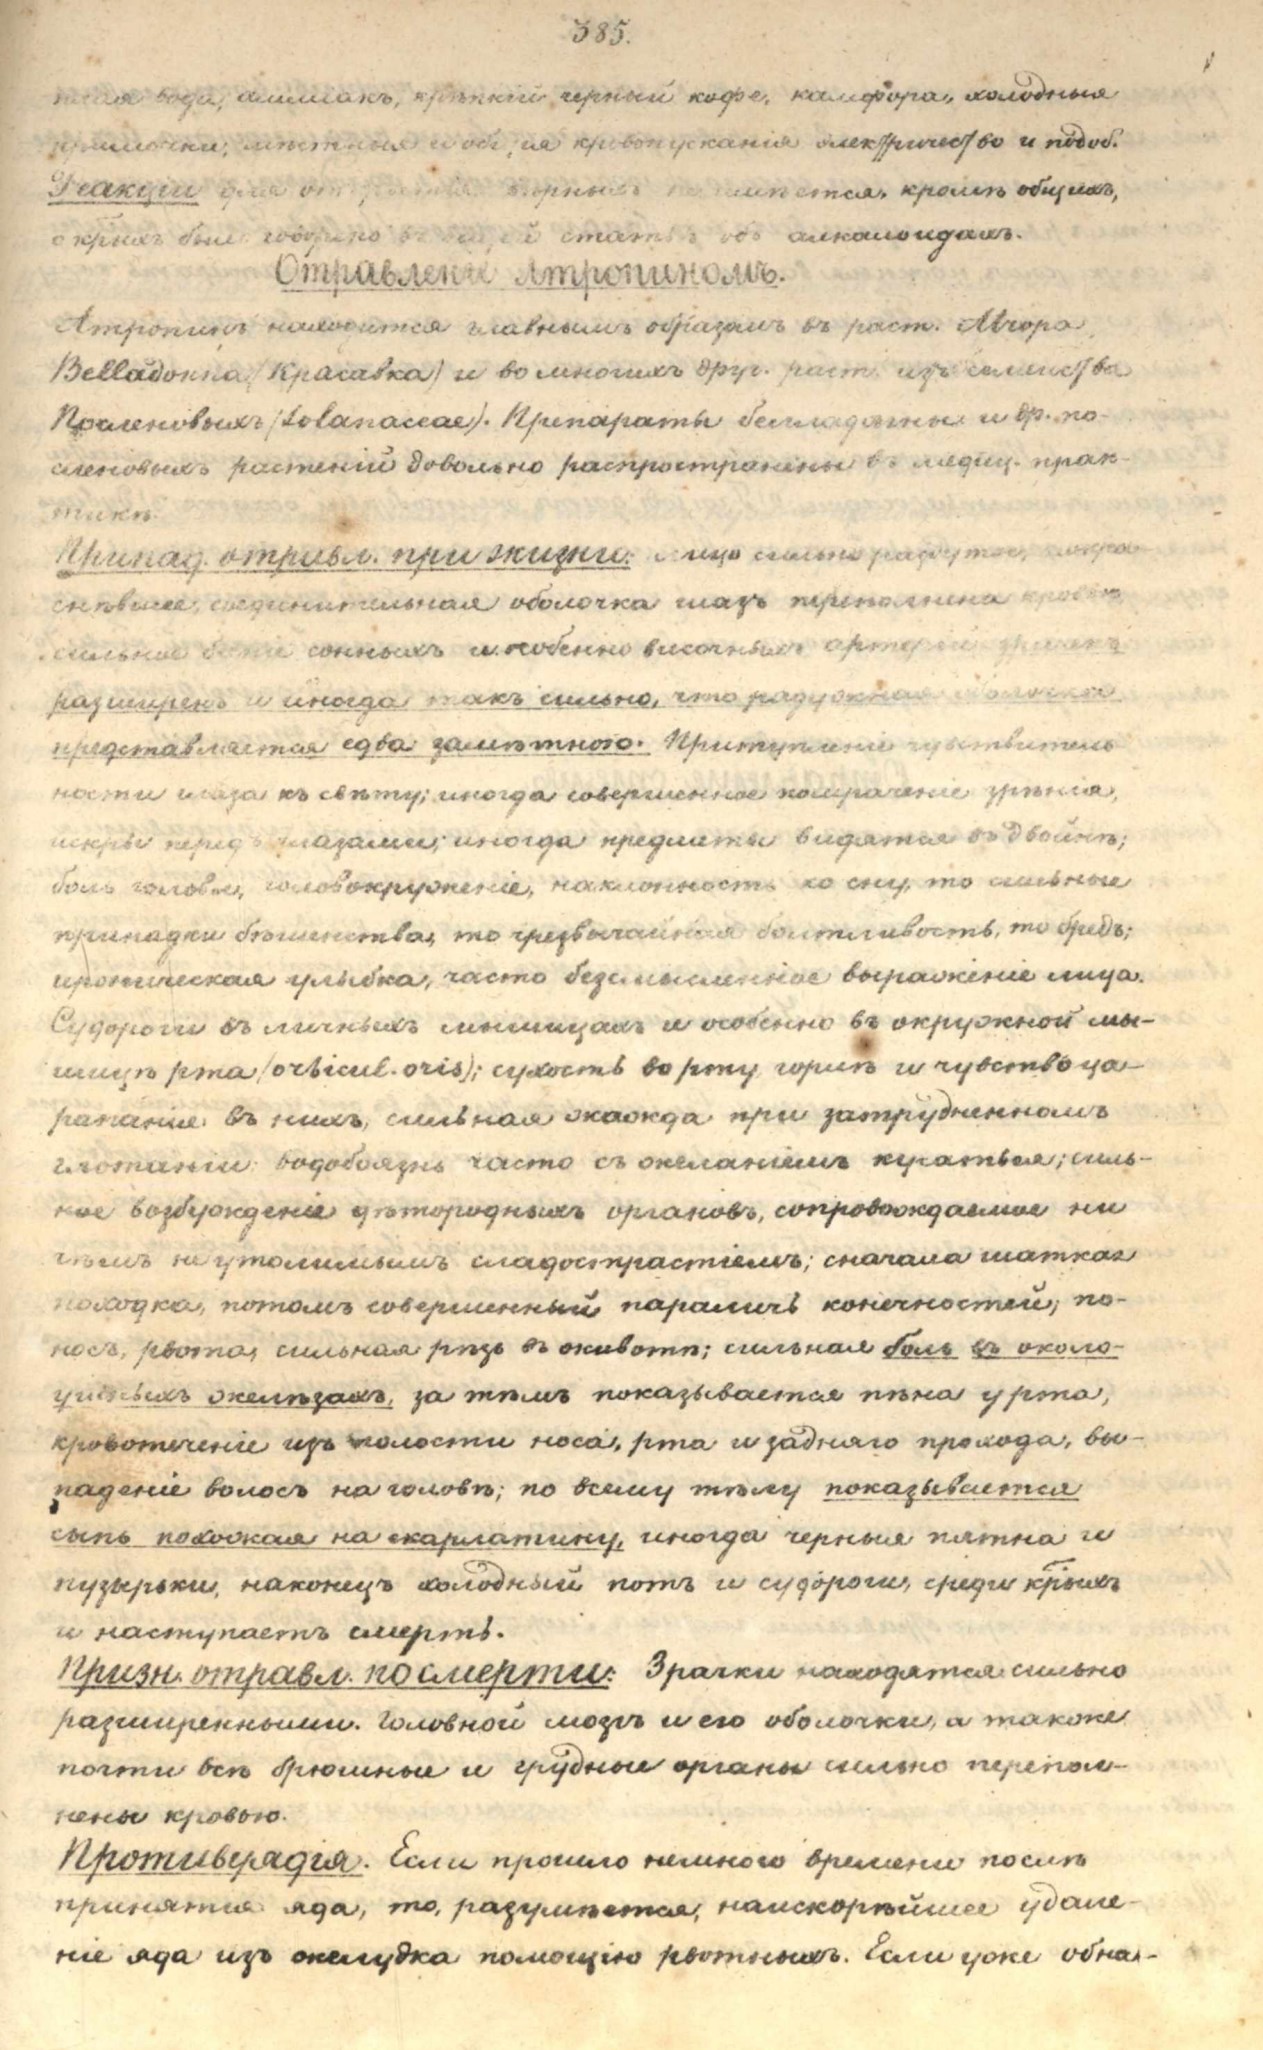 385.
вода, амміакъ, крѣпкій черный кофе, камфора, холодныя
примочки, мѣстныя и общія кровопусканія электричество и подоб.
Реакціи для кромѣ общихъ,
о крыхъ было говорено въ общей статьѣ объ алкалоидахъ.
Отравленіе Атропиномъ.
Атропинъ находится главнымъ образомъ въ раст. Atropa
Belladonna (Красавка) и во многихъ друг. раст. изъ семейства
Пасленовыхъ (Solanaceae). Препараты белладонны и др. па-
сленовыхъ растеній довольно распространены въ медиц. прак-
тикѣ.
Припад. отравл. при жизни: Лицо сильно раздутое, покра-
снѣвшее, соединительная оболочка глазъ переполнена кровью
сильное біеніе сонныхъ и особенно височныхъ артерій зрачекъ
расширенъ и иногда такъ сильно, что радужная оболочка
представляется едва замѣтною. Притупленіе чувствитель
ности глаза къ свѣту; иногда совершенное помраченіе зрѣнія,
искры передъ глазами; иногда предметы видятся въ двойнѣ;
боль головы, головокруженіе, наклонность ко сну, то сильные
припадки бѣшенства, то чрезвычайная болтливость, то бредъ;
ироническая улыбка, часто безсмысленное выраженіе лица.
Судороги въ личныхъ мышцахъ и особенно въ окружной мы-
шцѣ рта (orbicul. oris); сухость во рту горлѣ и чувство ца-
рапанія въ нихъ, сильная жажда при затрудненномъ
глотаніи: водобоязнь часто съ желаніемъ кусаться; силь-
ное возбужденіе дѣтородныхъ органовъ, сопровождаемое ни
чѣмъ не утолимымъ сладострастіемъ; сначала шаткая
походка, потомъ совершенный параличъ конечностей, по-
носъ, рвота, сильная рѣзь въ животѣ; сильная боль въ около-
ушныхъ железахъ, за тѣмъ показывается пѣна у рта,
кровотеченіе изъ полости носа, рта и задняго прохода, вы-
паденіе волосъ на головѣ; по всему тѣлу показывается
сыпь похожая на скарлатину, иногда черныя пятна и
пузырьки, наконецъ холодный потъ и судороги, среди крыхъ
и наступаетъ смерть.
Призн. отравл. по смерти: Зрачки находятся сильно
расширенными. Головной мозгъ и его оболочки, а также
почти всѣ брюшные и грудные органы сильно перепол-
нены кровью.
Противуядія. Если прошло немного времени послѣ
принятія яда, то, разумѣется, наискорѣйшее удале-
ніе яда изъ желудка помощію рвотныхъ. Если уже обна-